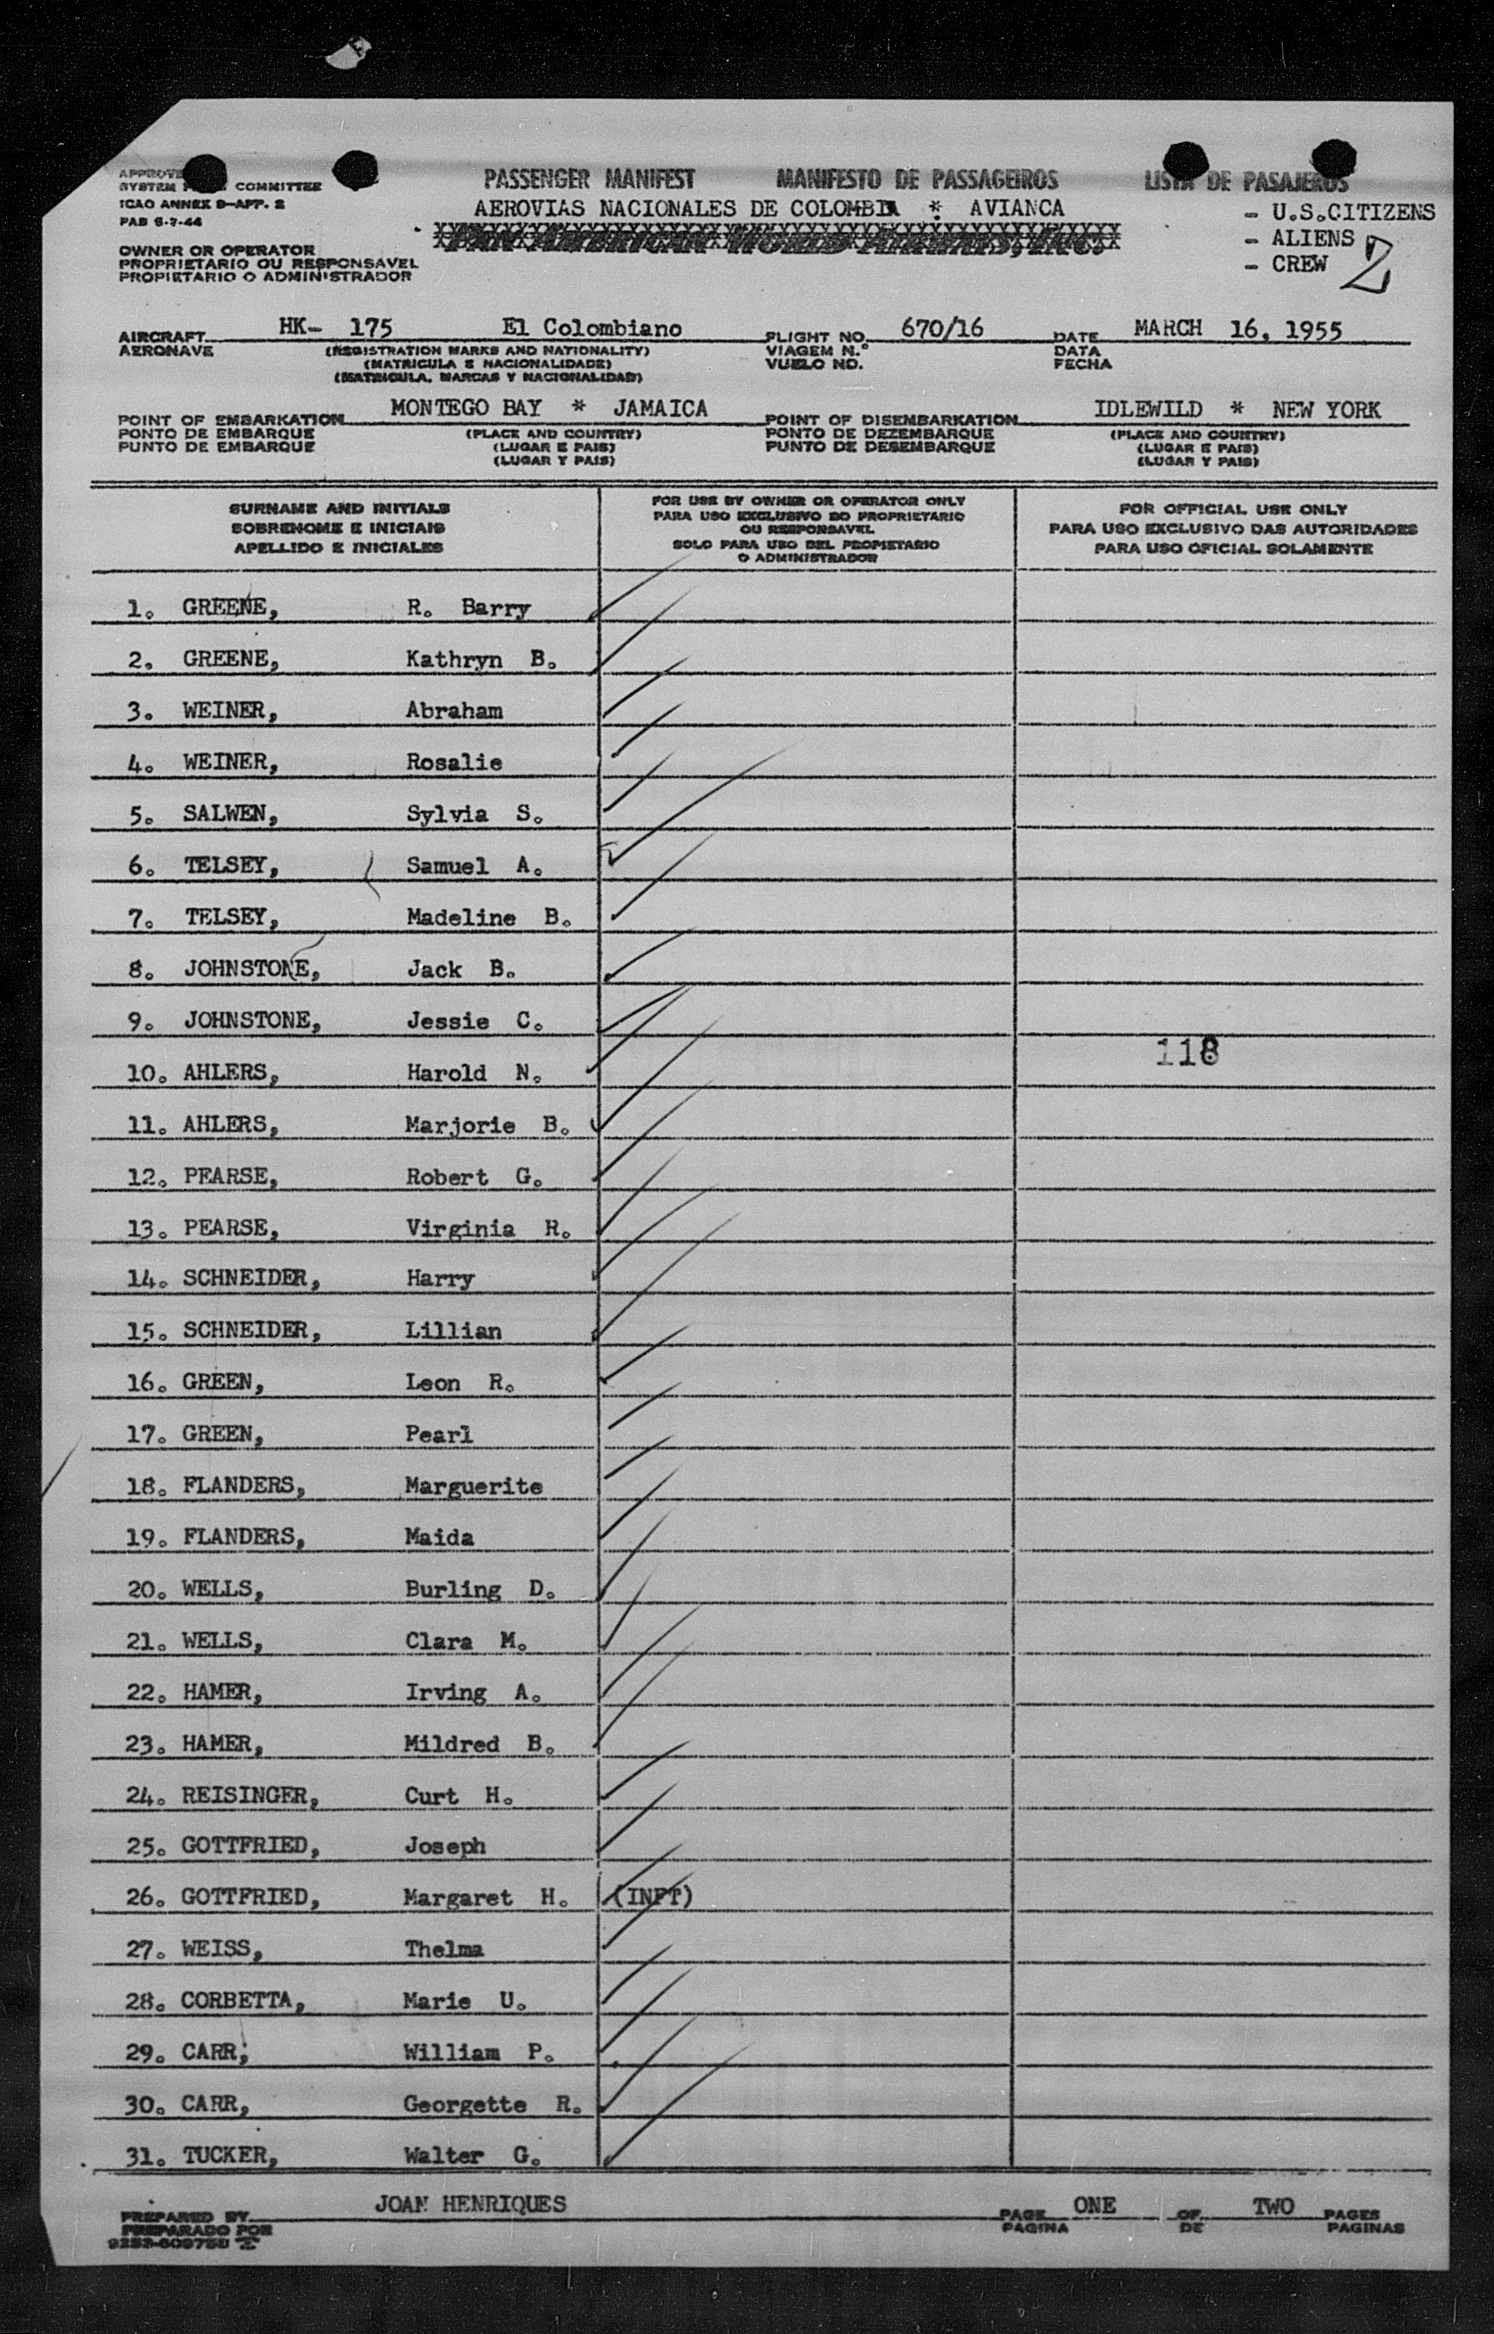 PASSENGER MANIFEST MANIFESTO DE PASSAGEIROS LISTA DE PASAJEROS
APPROVE
SYSTEM COMMITTEE
ICAO ANNEX 9-APP. 2
PAB 6-7-44
AEROVIAS NACIONALES DE COLOMBIA * AVIANCA
PAN AMERICAN WORLD AIRWAYS, INC.
- U.S.CITIZENS
- ALIENS
- CREW
2
OWNER OR OPERATOR
PROPRIETARIO OU RESPONSAVEL
PROPIETARIO O ADMINISTRADOR
AIRCRAFT HK- 175 El Colombiano FLIGHT NO. 670/16 DATE MARCH 16, 1955
AERONAVE (REGISTRATION MARKS AND NATIONALITY) VIAGEM N.º DATA
(MATRICULA E NACIONALIDADE) VUELO NO. FECHA
(MATRICULA, MARCAS Y NACIONALIDAD)
POINT OF EMBARKATION MONTEGO BAY * JAMAICA POINT OF DISEMBARKATION IDLEWILD * NEW YORK
PONTO DE EMBARQUE (PLACE AND COUNTRY) PONTO DE DEZEMBARQUE (PLACE AND COUNTRY)
PUNTO DE EMBARQUE (LUGAR E PAIS) PUNTO DE DESEMBARQUE (LUGAR E PAIS)
(LUGAR Y PAIS) (LUGAR Y PAIS)
SURNAME AND INITIALS
SOBRENOME E INICIAIS
APELLIDO E INICIALES
FOR USE BY OWNER OR OPERATOR ONLY
PARA USO EXCLUSIVO DO PROPRIETARIO
OU RESPONSAVEL
SOLO PARA USO DEL PROPIETARIO
O ADMINISTRADOR
FOR OFFICIAL USE ONLY
PARA USO EXCLUSIVO DAS AUTORIDADES
PARA USO OFICIAL SOLAMENTE
1. GREENE, R. Barry
2. GREENE, Kathryn B.
3. WEINER, Abraham
4. WEINER, Rosalie
5. SALWEN, Sylvia S.
6. TELSEY, Samuel A.
7. TELSEY, Madeline B.
8. JOHNSTONE, Jack B.
9. JOHNSTONE, Jessie C.
118
10. AHLERS, Harold N.
11. AHLERS, Marjorie B.
12. PEARSE, Robert G.
13. PEARSE, Virginia R.
14. SCHNEIDER, Harry
15. SCHNEIDER, Lillian
16. GREEN, Leon R.
17. GREEN, Pearl
18. FLANDERS, Marguerite
19. FLANDERS, Maida
20. WELLS, Burling D.
21. WELLS, Clara M.
22. HAMER, Irving A.
23. HAMER, Mildred B.
24. REISINGER, Curt H.
25. GOTTFRIED, Joseph
26. GOTTFRIED, Margaret H. (INFT)
27. WEISS, Thelma
28. CORBETTA, Marie U.
29. CARR, William P.
30. CARR, Georgette R.
31. TUCKER, Walter G.
PREPARED BY JOAN HENRIQUES PAGE ONE OF TWO PAGES
PREPARADO POR PAGINA DE PAGINAS